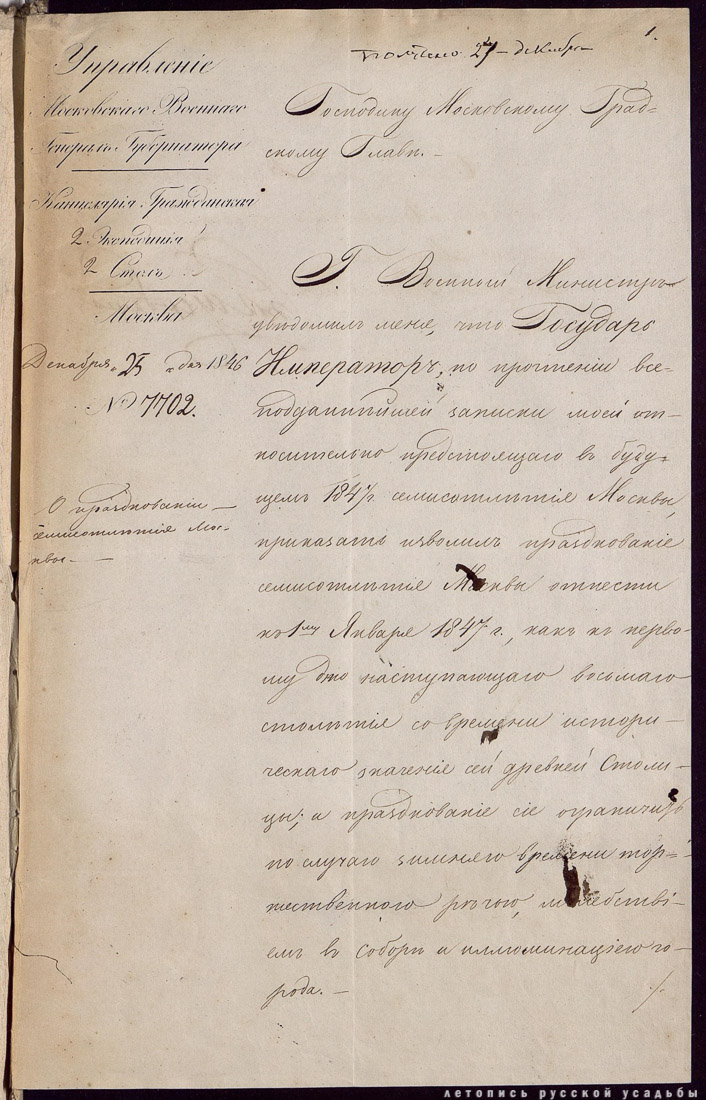 1.
Получено 27 декабря
Управленіе
Московскаго Военнаго
Генералъ Губернатора
Канцелярія Гражданская
2 Экспедиція
2 Столъ
Москва
Декабря 25 дня 1846
№ 7702.
О празднованіи
семисотлѣтія Мос-
квы.—
Господину Московскому Град-
скому Главѣ.—
Г. Военный Министръ
увѣдомилъ меня, что Государь
Императоръ, по прочтеніи все-
подданнѣйшей записки моей от-
носительно предстоящаго въ буду-
щемъ 1847 г. семисотлѣтія Москвы,
приказать изволилъ празднованіе
семисотлѣтія Москвы отнести
къ 1му Января 1847 г., какъ къ перво-
му дню наступающаго восьмаго
столѣтія со времени истори-
ческаго значенія сей древней Столи-
цы; и празднованіе сіе ограничить
по случаю зимняго времени тор-
жественною рѣчью, молебстві-
емъ въ Соборѣ и иллюминаціею го-
рода.—
летопись русской усадьбы